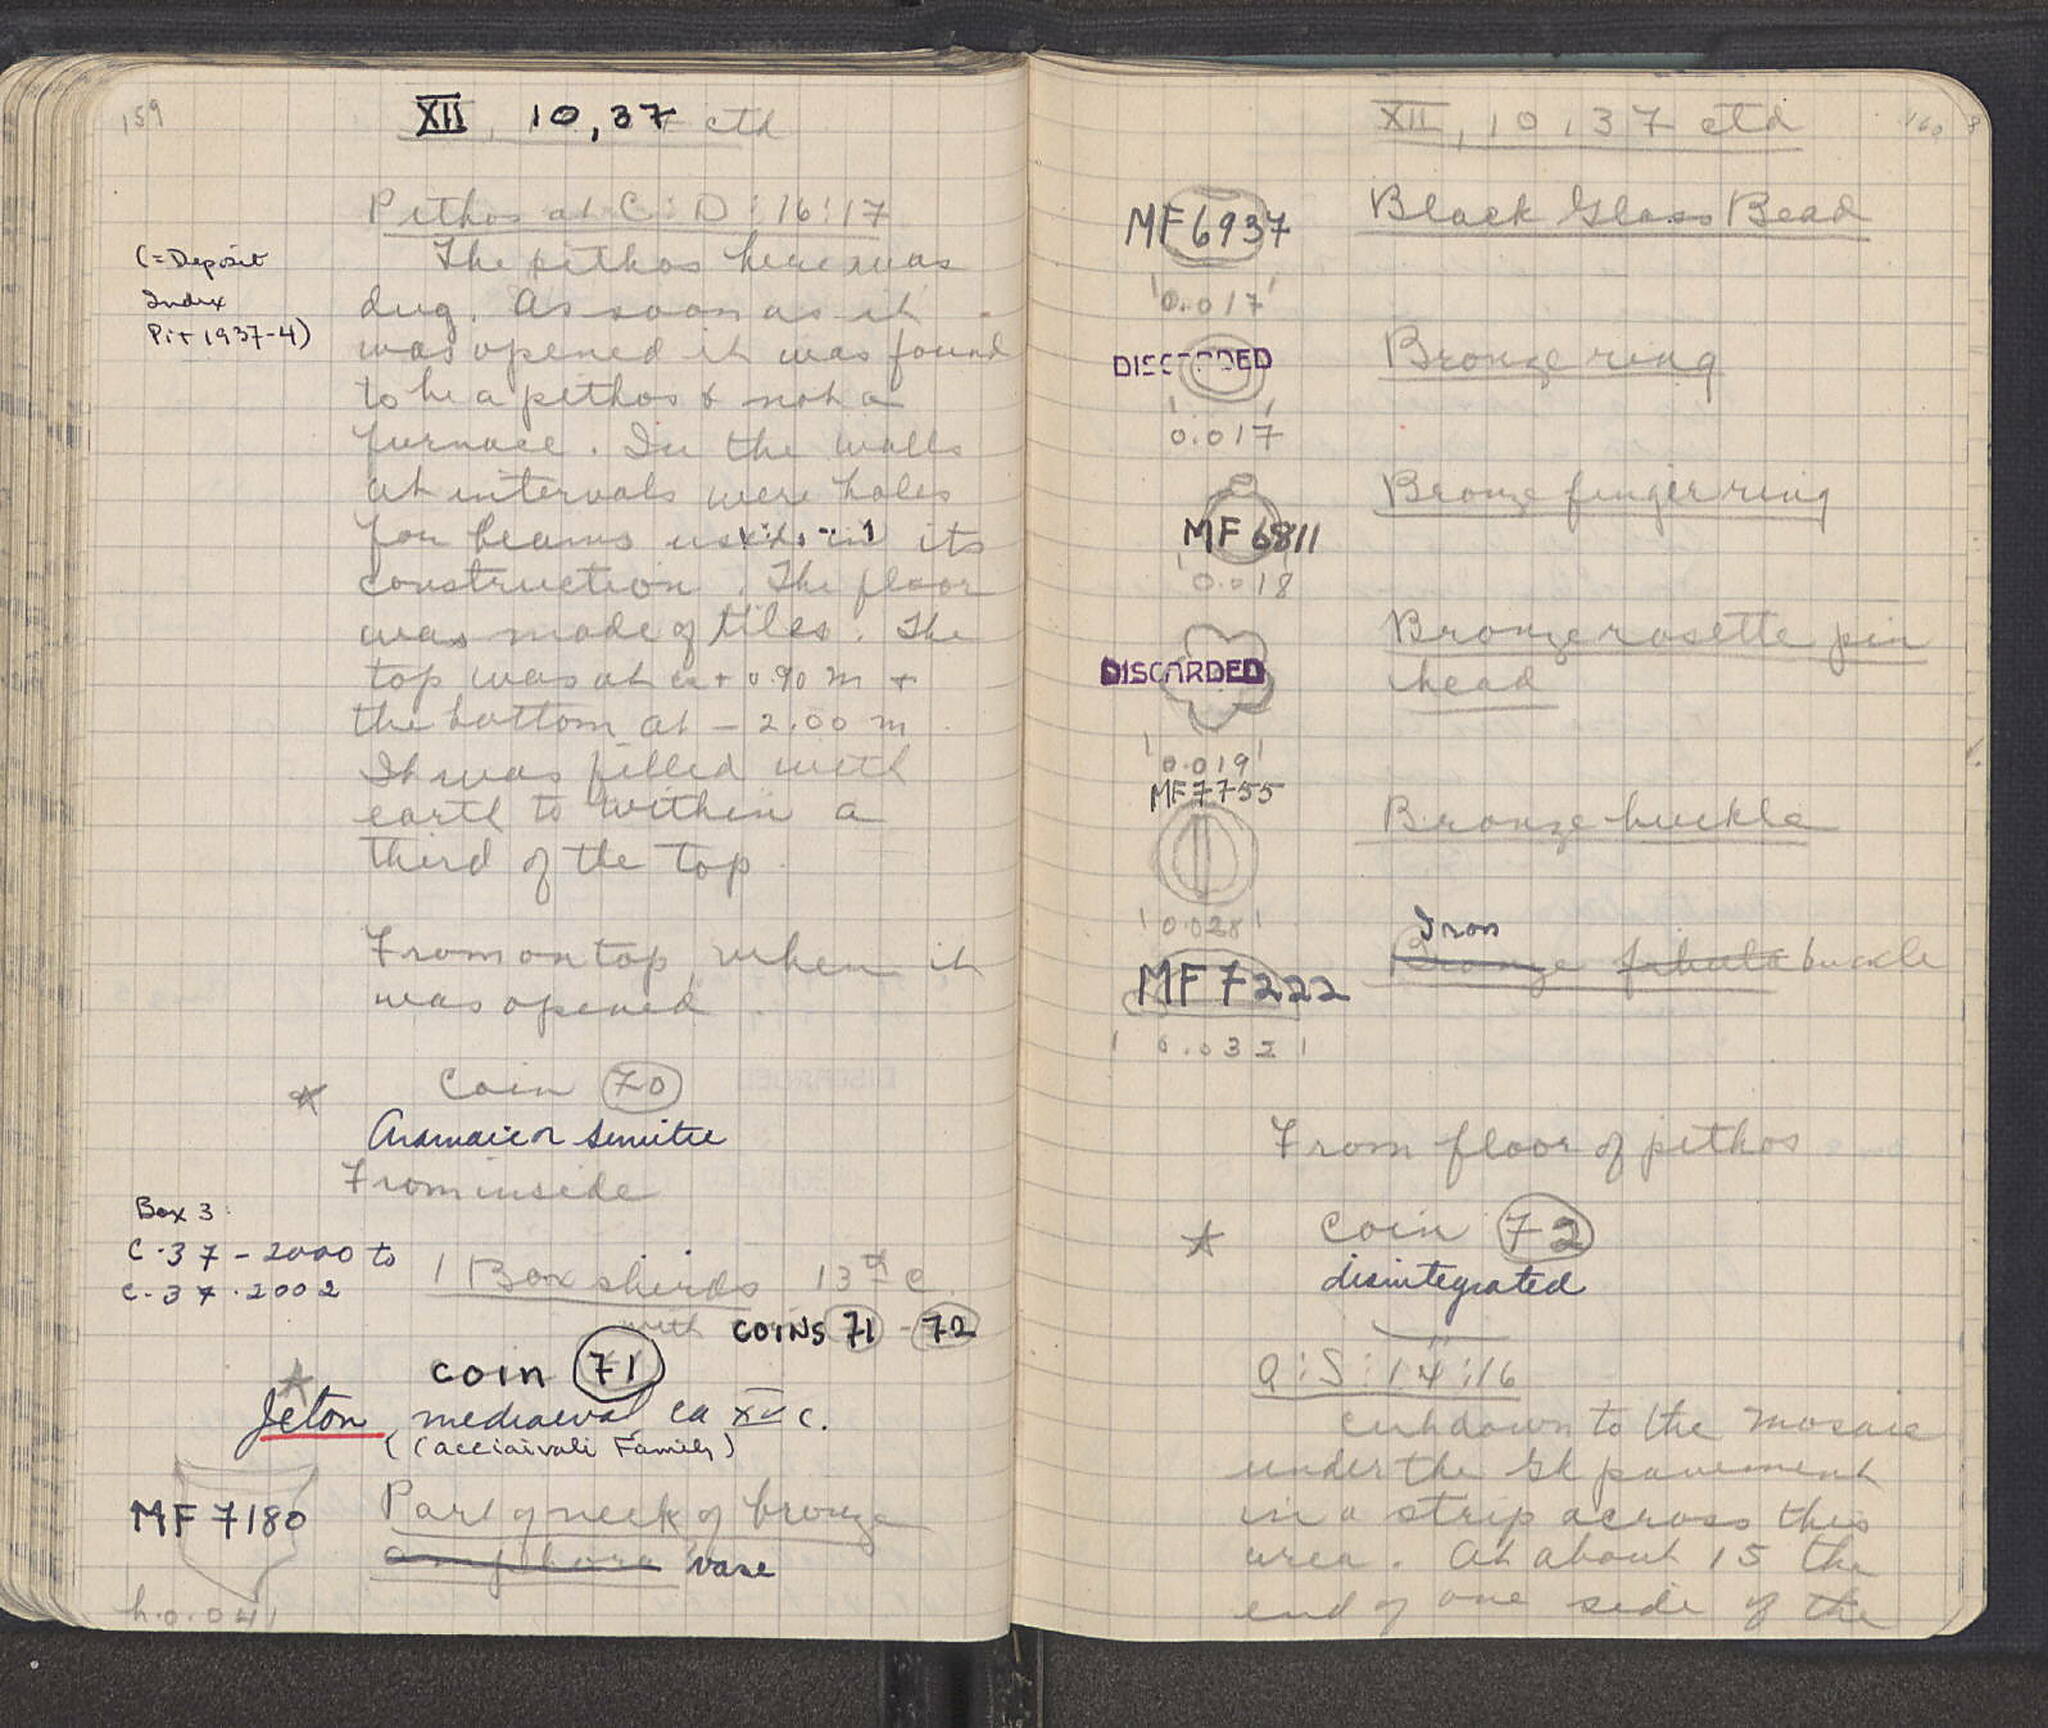 159
XII, 10, 37 ctd
Pithos at C:D:16:17
(= Deposit
Index
Pit 1937-4)
The pithos here was
dug. As soon as it
was opened it was found
to be a pithos & not a
furnace. In the walls
at intervals were holes
for beams used in its
construction. The floor
was made of tiles. The
top was at + 0.90 m +
the bottom at - 2.00 m
It was filled with
earth to within a
third of the top.
From on top, when it
was opened.
Coin 70
Aramaic or Semitic
From inside
Box 3
C-37-2000 to
C-37-2002
1 Box sherds 13th c.
with COINS 71 - 72
COIN 71
Jeton, mediaeval ca XV c.
(Acciaivoli Family)
MF 7180
Part of neck of bronze
amphora vase
h. 0.041
XII, 10, 37 ctd
160
MF 6937
Black Glass Bead
0.017
DISCARDED
Bronze ring
0.017
Bronze finger ring
MF 6811
0.018
Bronze rosette pin
head
DISCARDED
0.019
MF 7755
Bronze buckle
0.028
Iron
Bronze fibula buckle
MF 7222
0.032
From floor of pithos
Coin 72
disintegrated
Q:S:14:16
Cut down to the mosaic
under the Gk pavement
in a strip across this
area. At about 15 the
end of one side of the